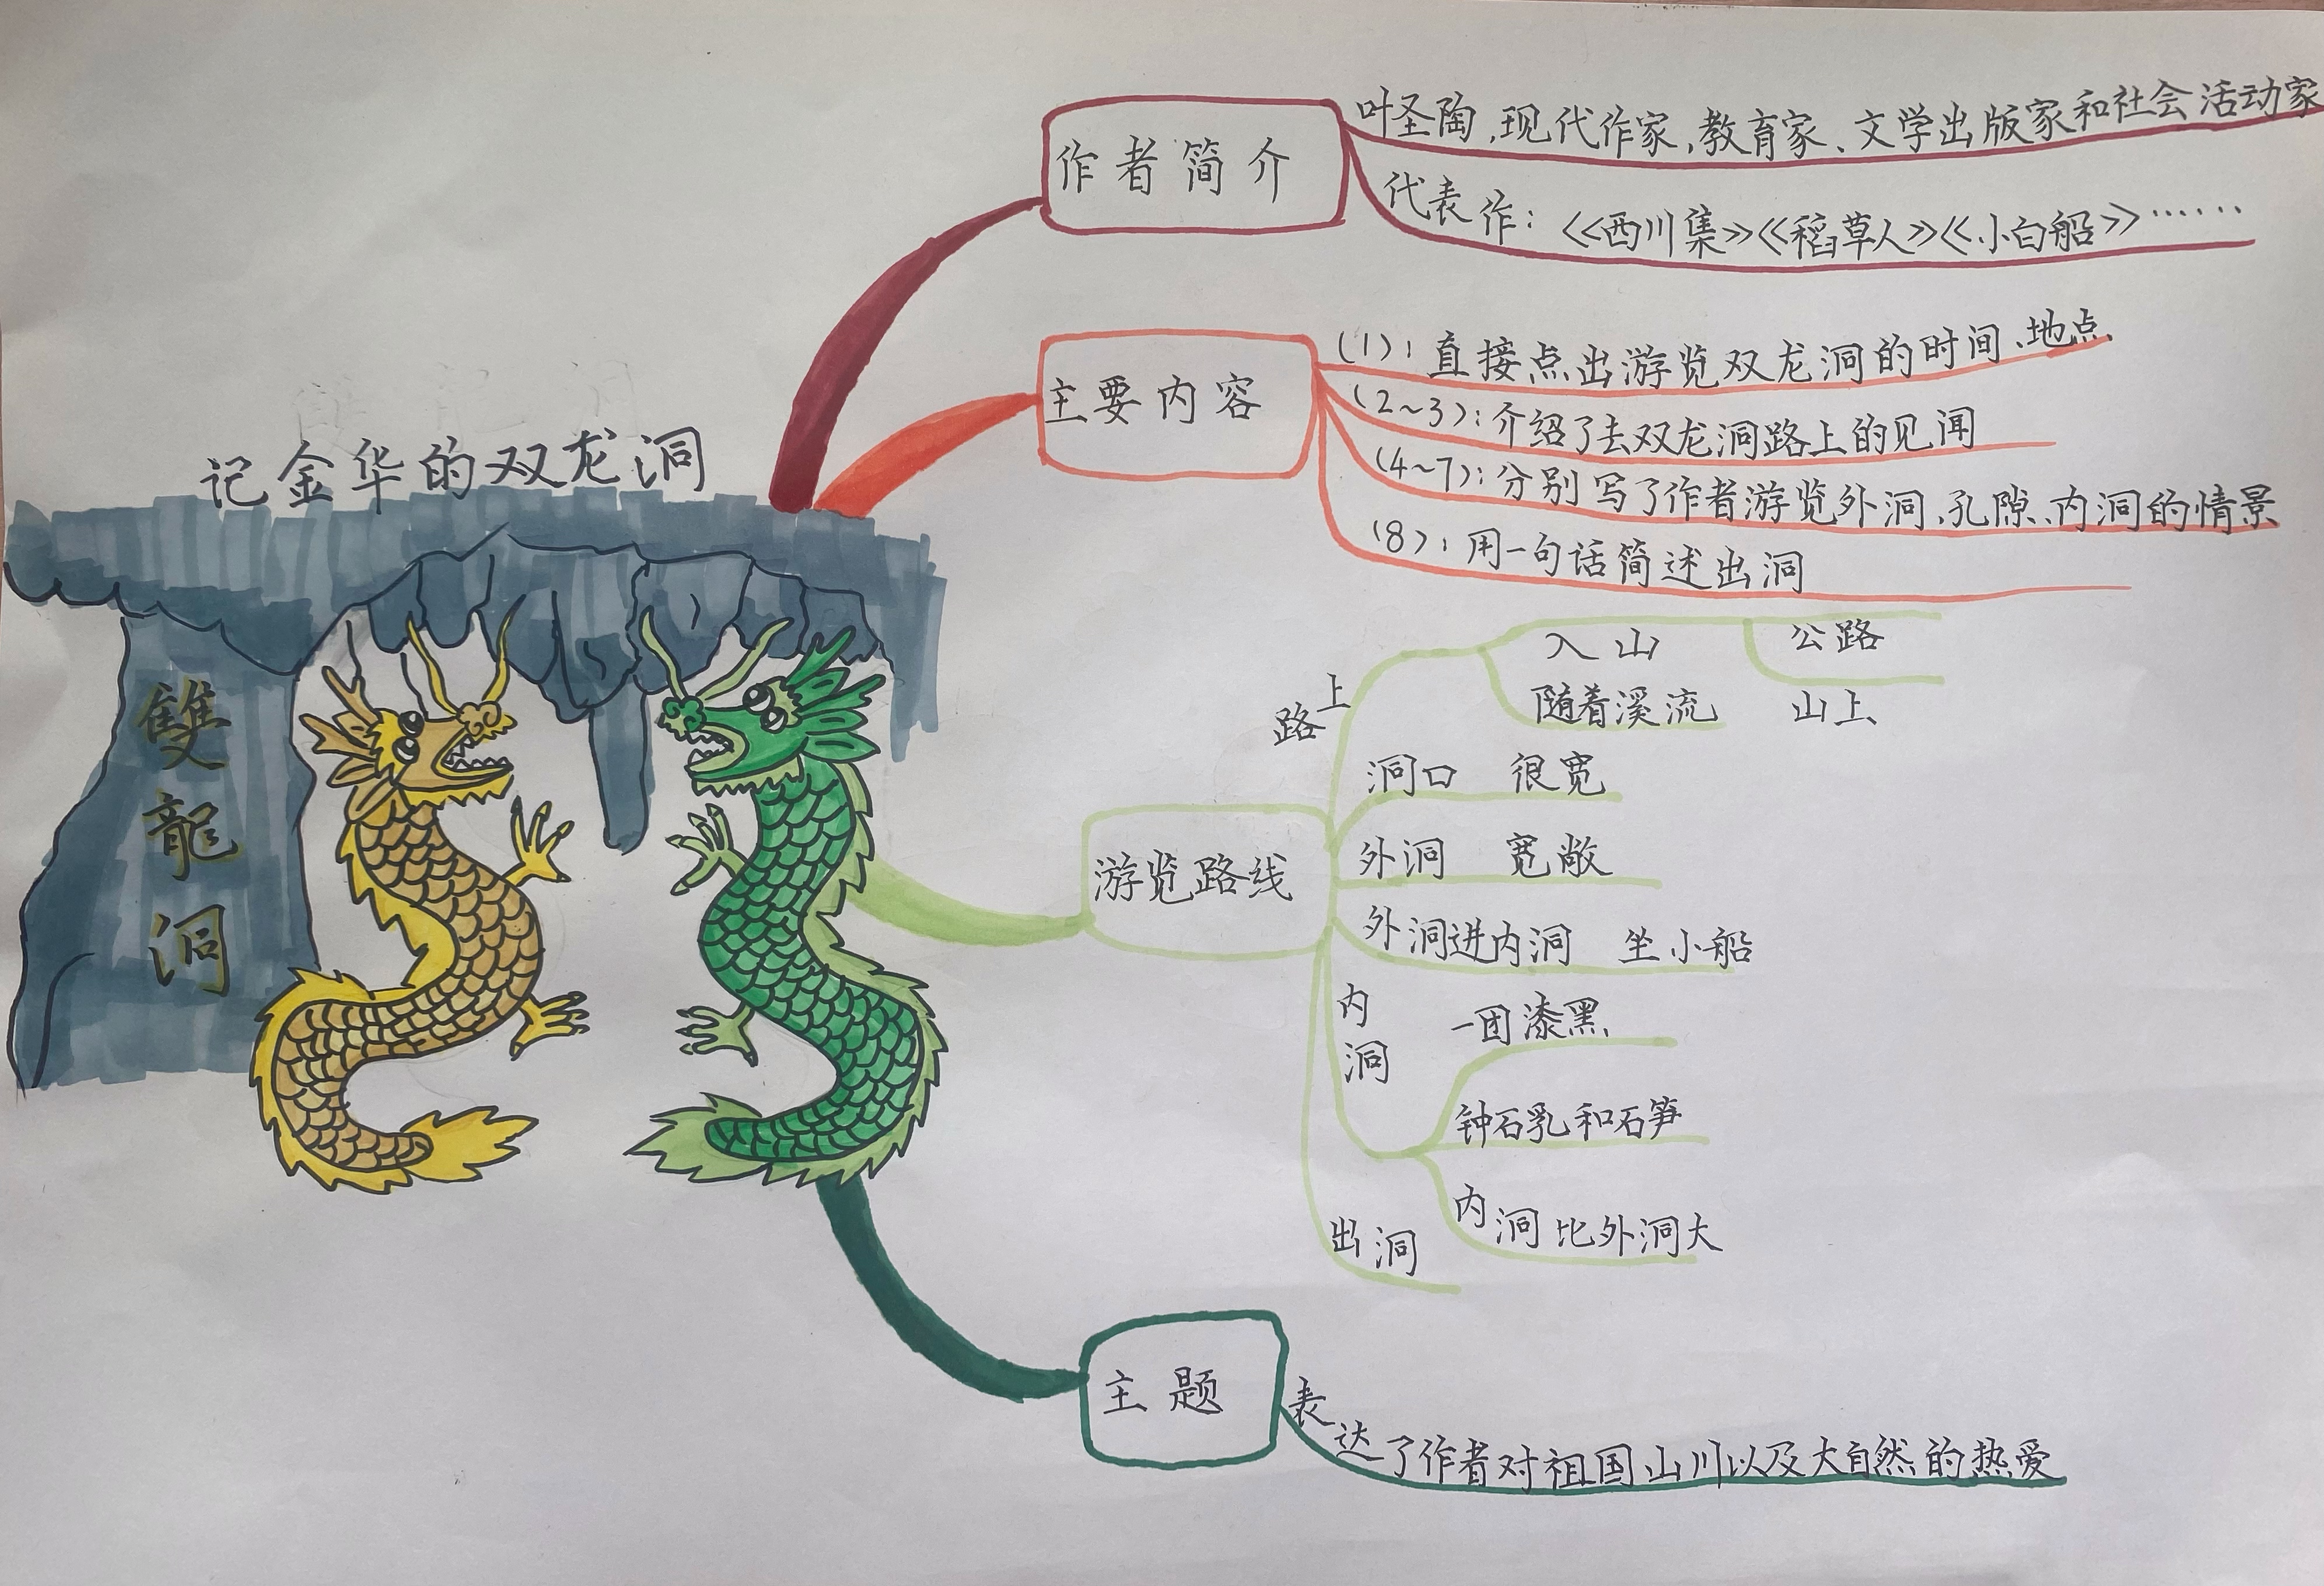 记金华的双龙洞
雙龍洞
作者简介
叶圣陶,现代作家,教育家、文学出版家和社会活动家
代表作：《西川集》《稻草人》《小白船》……
主要内容
(1)：直接点出游览双龙洞的时间、地点、
(2~3)：介绍了去双龙洞路上的见闻
(4~7)：分别写了作者游览外洞、孔隙、内洞的情景
(8)：用一句话简述出洞
游览路线
路上
入山
公路
随着溪流
山上
洞口 很宽
外洞 宽敞
外洞进内洞 坐小船
内洞
一团漆黑
钟石乳和石笋
内洞比外洞大
出洞
主题
表达了作者对祖国山川以及大自然的热爱